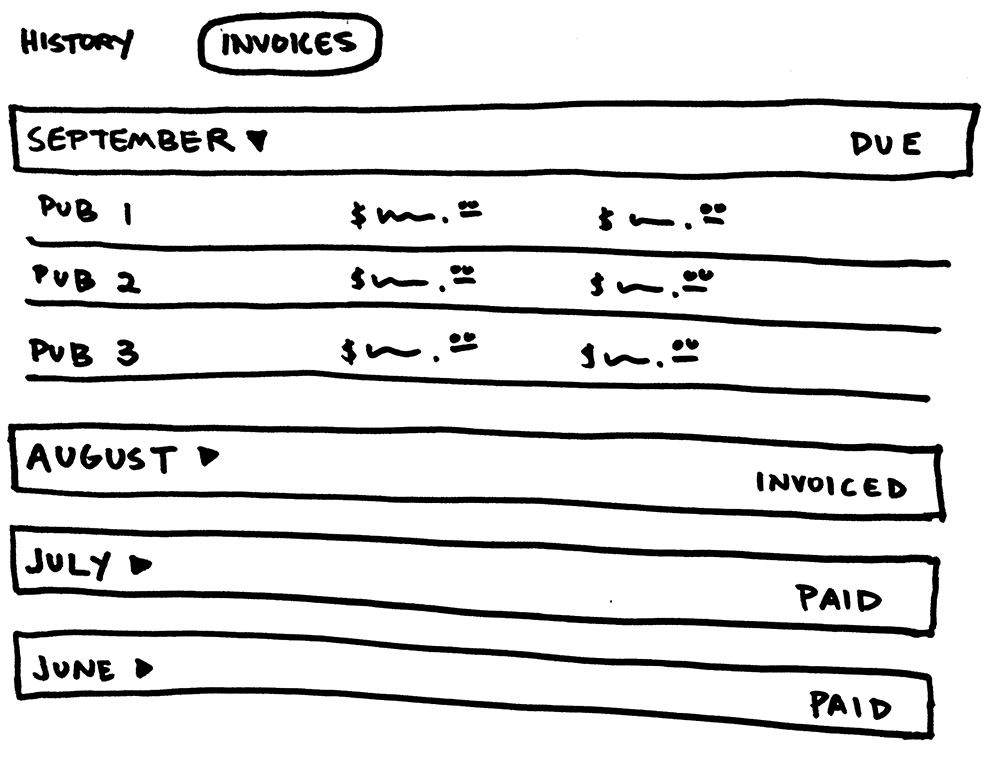 HISTORY INVOICES
SEPTEMBER ▼ DUE
PUB 1 $ . 00 $ . 00
PUB 2 $ . 00 $ . 00
PUB 3 $ . 00 $ . 00
AUGUST ▶ INVOICED
JULY ▶ PAID
JUNE ▶ PAID